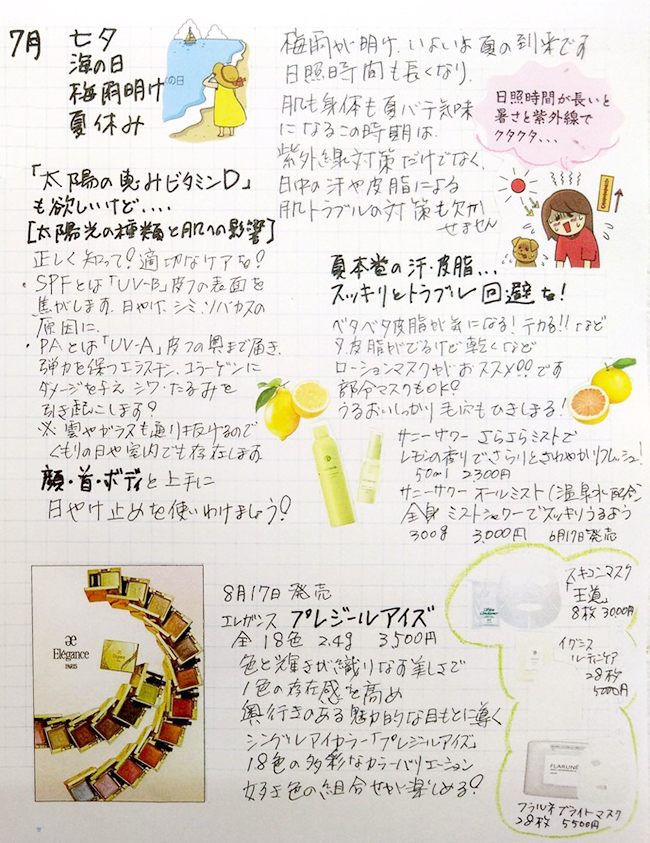 7月
七夕
海の日
梅雨明け
夏休み
の日
梅雨が明け、いよいよ夏の到来です
日照時間も長くなり、
肌も身体も夏バテ気味
になるこの時期は、
紫外線対策だけでなく、
日中の汗や皮脂による
肌トラブルの対策も欠か
せません
日照時間が長いと
暑さと紫外線で
クタクタ・・・
「太陽の恵みビタミンD」
も欲しいけど....
[太陽光の種類と肌への影響]
正しく知って!適切なケアを!
・SPFとは「UV-B」皮フの表面を
焦がします。日やけ、シミ、ソバカスの
原因に、
・PAとは「UV-A」皮フの奥まで届き、
弾力を保つエラスチン、コラーゲンに
ダメージを与え シワ・たるみを
引き起こします?
※雲やガラスも通り抜けるので
くもりの日や室内でも存在します
顔・首・ボディと上手に
日やけ止めを使いわけましょう!
夏本番の汗・皮脂...
スッキリとトラブル回避を!
ベタベタ皮脂が気になる!テカる!!など
皮脂がでるけど乾くなど
ローションマスクがおススメ!!です
部分マスクもOK?
うるおいしっかり毛穴もひきしまる!
サニーサワー さらさらミストで
レモンの香りでさらりとさわやかリフレッシュ!
50ml 2300円
サニーサワー オールミスト(温泉水配合)
全身ミストシャワーでスッキリうるおう
300g 3,000円 6月17日発売
æ
Elégance
PARIS
8月17日発売
エレガンス プレジールアイズ
全18色 2.4g 3,500円
色と輝きが織りなす美しさで
1色の存在感を高め
奥行きのある魅力的な目もとに導く
シングルアイカラー「プレジールアイズ」
18色の多彩なカラーバリエーション
好きな色の組合せが楽しめる?
スキコンマスク
「王道」
8枚 3000円
イグニス
ルーティンケア
28枚
5000円
FLARUNÉ
フラルネ ブライトマスク
28枚 5500円